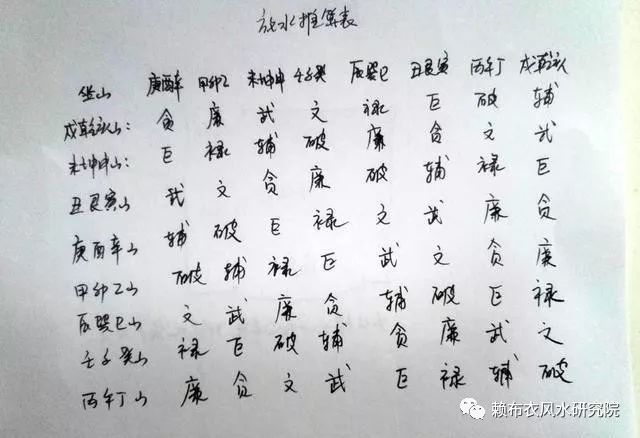 放水推算表
坐山 庚酉辛 甲卯乙 未坤申 壬子癸 辰巽巳 丑艮寅 丙午丁 戌乾亥
戌乾亥山： 贪 廉 武 文 禄 巨 破 辅
未坤申山： 巨 禄 辅 破 廉 贪 文 武
丑艮寅山 武 文 贪 廉 破 辅 禄 巨
庚酉辛山 辅 破 巨 禄 文 武 廉 贪
甲卯乙山 破 辅 禄 巨 武 文 贪 廉
辰巽巳山 文 武 廉 贪 辅 破 巨 禄
壬子癸山 禄 巨 破 辅 贪 廉 武 文
丙午丁山 廉 贪 文 武 巨 禄 辅 破
赖布衣风水研究院